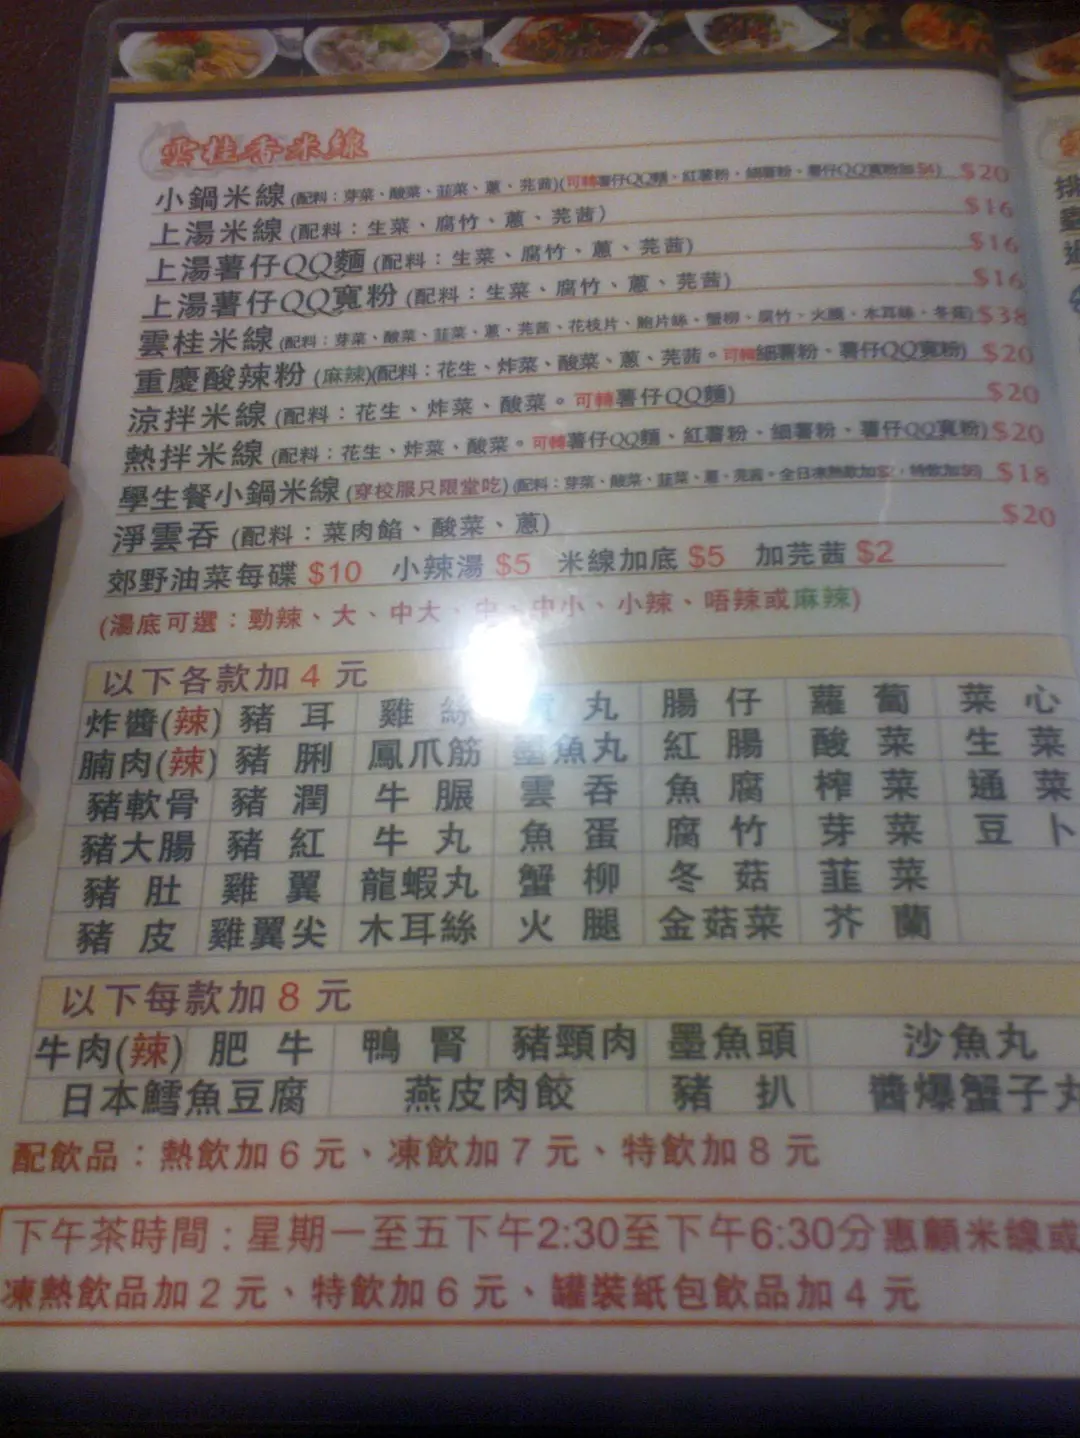 雲桂香米線
小鍋米線 (配料：芽菜、酸菜、韮菜、蔥、芫茜)(可轉薯仔QQ麵、紅薯粉、細薯粉、薯仔QQ寬粉加$4) $20
上湯米線 (配料：生菜、腐竹、蔥、芫茜) $16
上湯薯仔QQ麵 (配料：生菜、腐竹、蔥、芫茜) $16
上湯薯仔QQ寬粉 (配料：生菜、腐竹、蔥、芫茜) $16
雲桂米線 (配料：芽菜、酸菜、韮菜、蔥、芫茜、花枝片、鮑片絲、蟹柳、腐竹、火腿、木耳絲、冬菇) $38
重慶酸辣粉 (麻辣)(配料：花生、炸菜、酸菜、蔥、芫茜。可轉細薯粉、薯仔QQ寬粉) $20
涼拌米線 (配料：花生、炸菜、酸菜。可轉薯仔QQ麵) $20
熱拌米線 (配料：花生、炸菜、酸菜。可轉薯仔QQ麵、紅薯粉、細薯粉、薯仔QQ寬粉) $20
學生餐小鍋米線 (穿校服只限堂吃) (配料：芽菜、酸菜、韮菜、蔥、芫茜。全日凍熱飲加$2，特飲加$6) $18
淨雲吞 (配料：菜肉餡、酸菜、蔥) $20
郊野油菜每碟 $10 小辣湯 $5 米線加底 $5 加芫茜 $2
(湯底可選：勁辣、大、中大、中、中小、小辣、唔辣或麻辣)
以下各款加 4 元
炸醬(辣) 豬耳 雞絲 丸 腸仔 蘿蔔 菜心
腩肉(辣) 豬脷 鳳爪筋 墨魚丸 紅腸 酸菜 生菜
豬軟骨 豬潤 牛𦟌 雲吞 魚腐 榨菜 通菜
豬大腸 豬紅 牛丸 魚蛋 腐竹 芽菜 豆卜
豬肚 雞翼 龍蝦丸 蟹柳 冬菇 韮菜
豬皮 雞翼尖 木耳絲 火腿 金菇菜 芥蘭
以下每款加 8 元
牛肉(辣) 肥牛 鴨腎 豬頸肉 墨魚頭 沙魚丸
日本鱈魚豆腐 燕皮肉餃 豬扒 醬爆蟹子丸
配飲品：熱飲加 6 元、凍飲加 7 元、特飲加 8 元
下午茶時間：星期一至五下午2:30至下午6:30分惠顧米線或
凍熱飲品加 2 元、特飲加 6 元、罐裝紙包飲品加 4 元